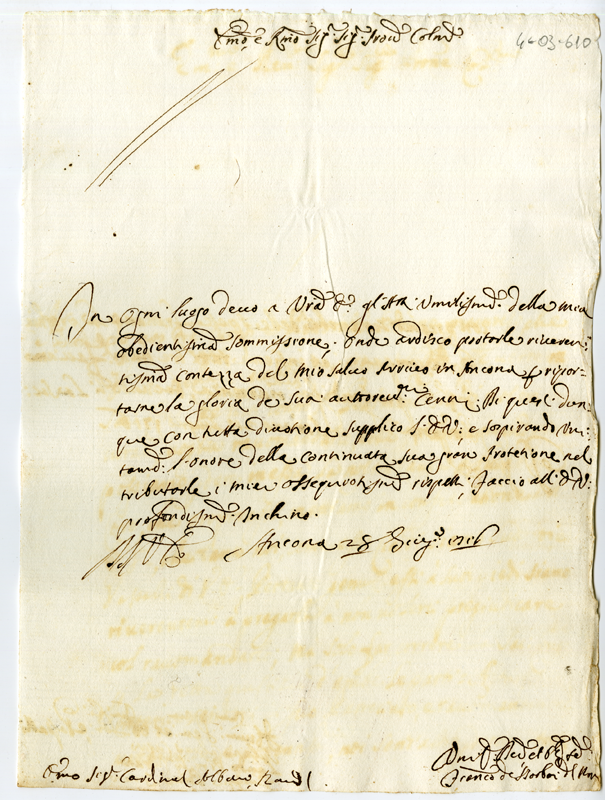 Em̃o e Rm̃o Sig.r Sig.r Prõn Colm̃o
4-03-610
In ogni luogo devo a Vrã E. gl'Atti Umilissmi della mia
obedientissma sommissione, onde ardisco portarle riveren-
tissma contezza del mio salvo arrivo in Ancona per ripor-
tarne la gloria de suoi auttorevmi Cenni. Di questi dun-
que con tutta divotione supplico l'E. V. e sospirando Uni-
tamte l'onore della continuata sua gran Protetione nel
tributarle i miei ossequiosissmi rispetti, faccio all'E. V.
profondissmo Inchino.
Ancona 28
Em̃o Sigr Cardinal Albani, Roma
Umo
Franco de